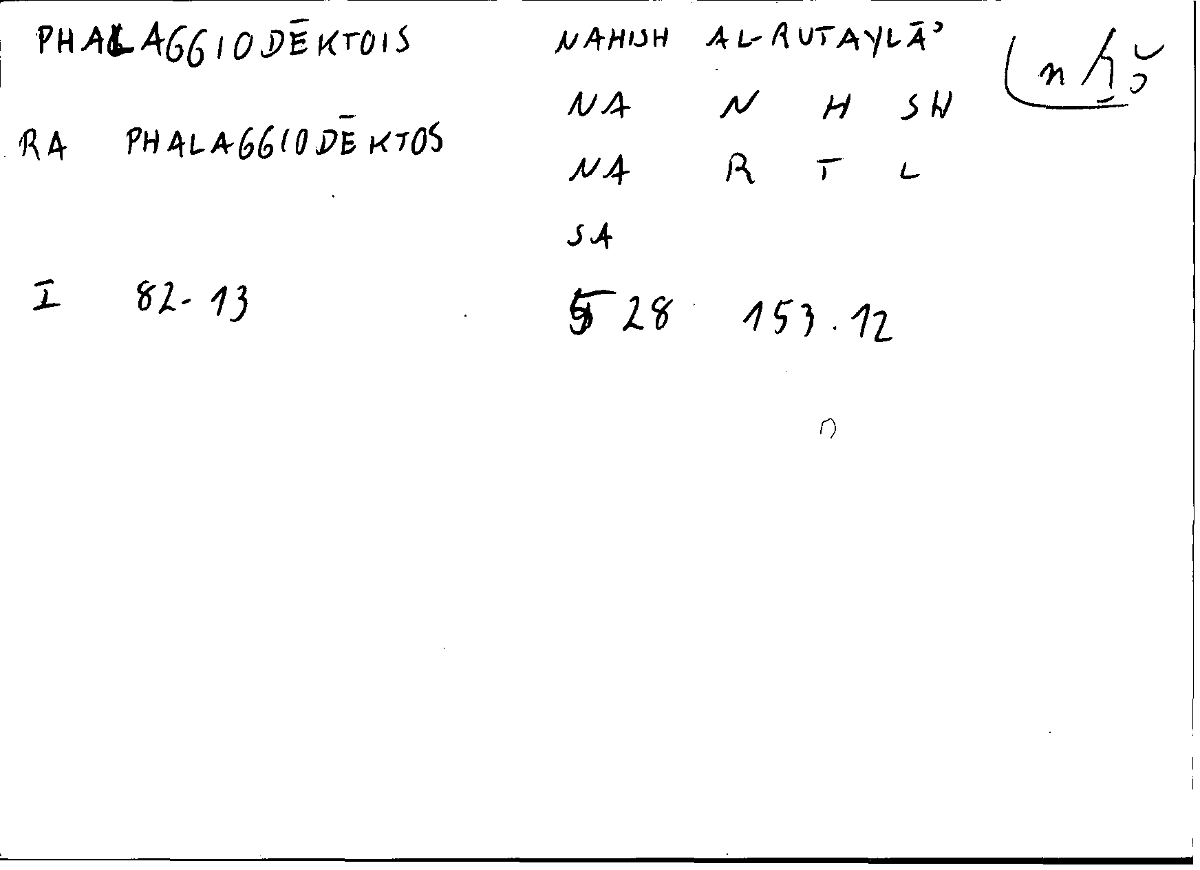 PHALAGGIODĒKTOIS NAHISH AL-RUTAYLĀʾ
NA N H SH
RA PHALAGGIODĒKTOS
NA R T L
SA
I 82-13 28 153.12